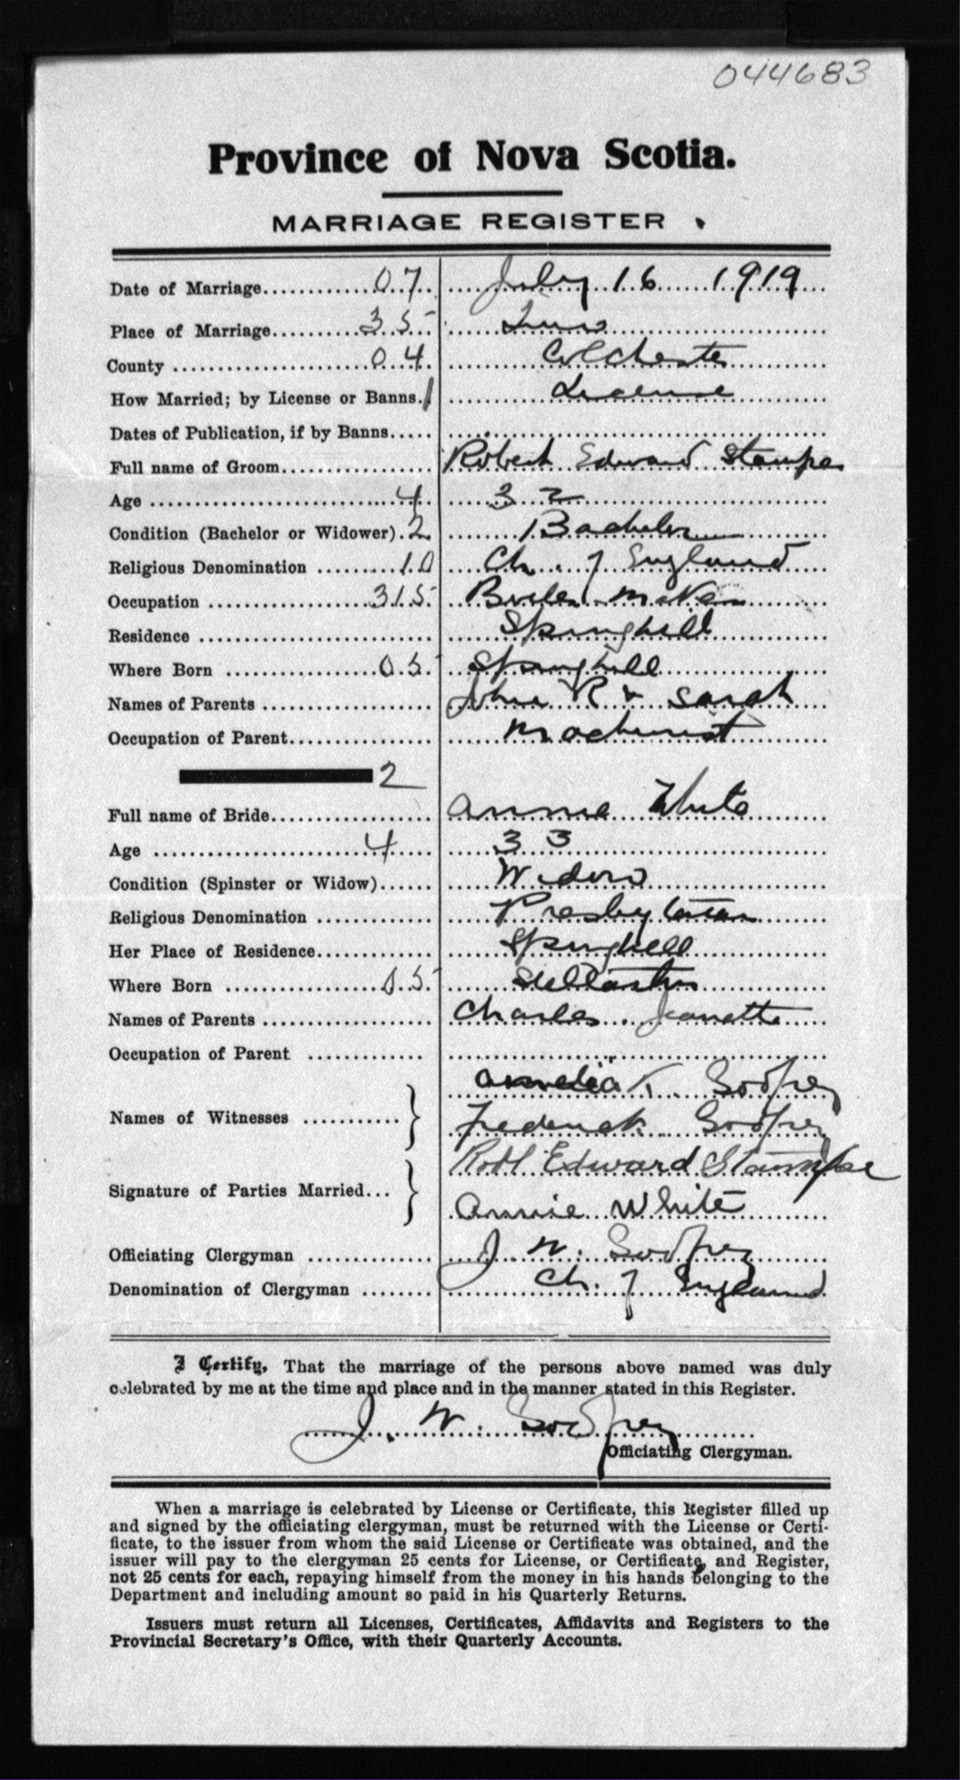 044683
Province of Nova Scotia.
MARRIAGE REGISTER
Date of Marriage 07 July 16 1919
Place of Marriage 35 Truro
County 04 Colchester
How Married; by License or Banns. 1 License
Dates of Publication, if by Banns
Full name of Groom Robert Edward Stanpe
Age 4 32
Condition (Bachelor or Widower). 2 Bachelor
Religious Denomination 10 Ch. of England
Occupation 315 Boiler maker
Residence Springhill
Where Born 05 Springhill
Names of Parents John R & Sarah
Occupation of Parent Machinist
2
Full name of Bride Annie White
Age 4 33
Condition (Spinster or Widow) Widow
Religious Denomination Presbyterian
Her Place of Residence Springhill
Where Born 05 Stellarton
Names of Parents Charles Jeanette
Occupation of Parent
Names of Witnesses Amelia T. Godfrey
Frederick Godfrey
Signature of Parties Married... Robt Edward
Annie White
Officiating Clergyman J. W. Godfrey
Denomination of Clergyman Ch. of England
I Certify, That the marriage of the persons above named was duly
celebrated by me at the time and place and in the manner stated in this Register.
J. W. Godfrey
Officiating Clergyman.
When a marriage is celebrated by License or Certificate, this Register filled up
and signed by the officiating clergyman, must be returned with the License or Certi-
ficate, to the issuer from whom the said License or Certificate was obtained, and the
issuer will pay to the clergyman 25 cents for License, or Certificate, and Register,
not 25 cents for each, repaying himself from the money in his hands belonging to the
Department and including amount so paid in his Quarterly Returns.
Issuers must return all Licenses, Certificates, Affidavits and Registers to the
Provincial Secretary's Office, with their Quarterly Accounts.